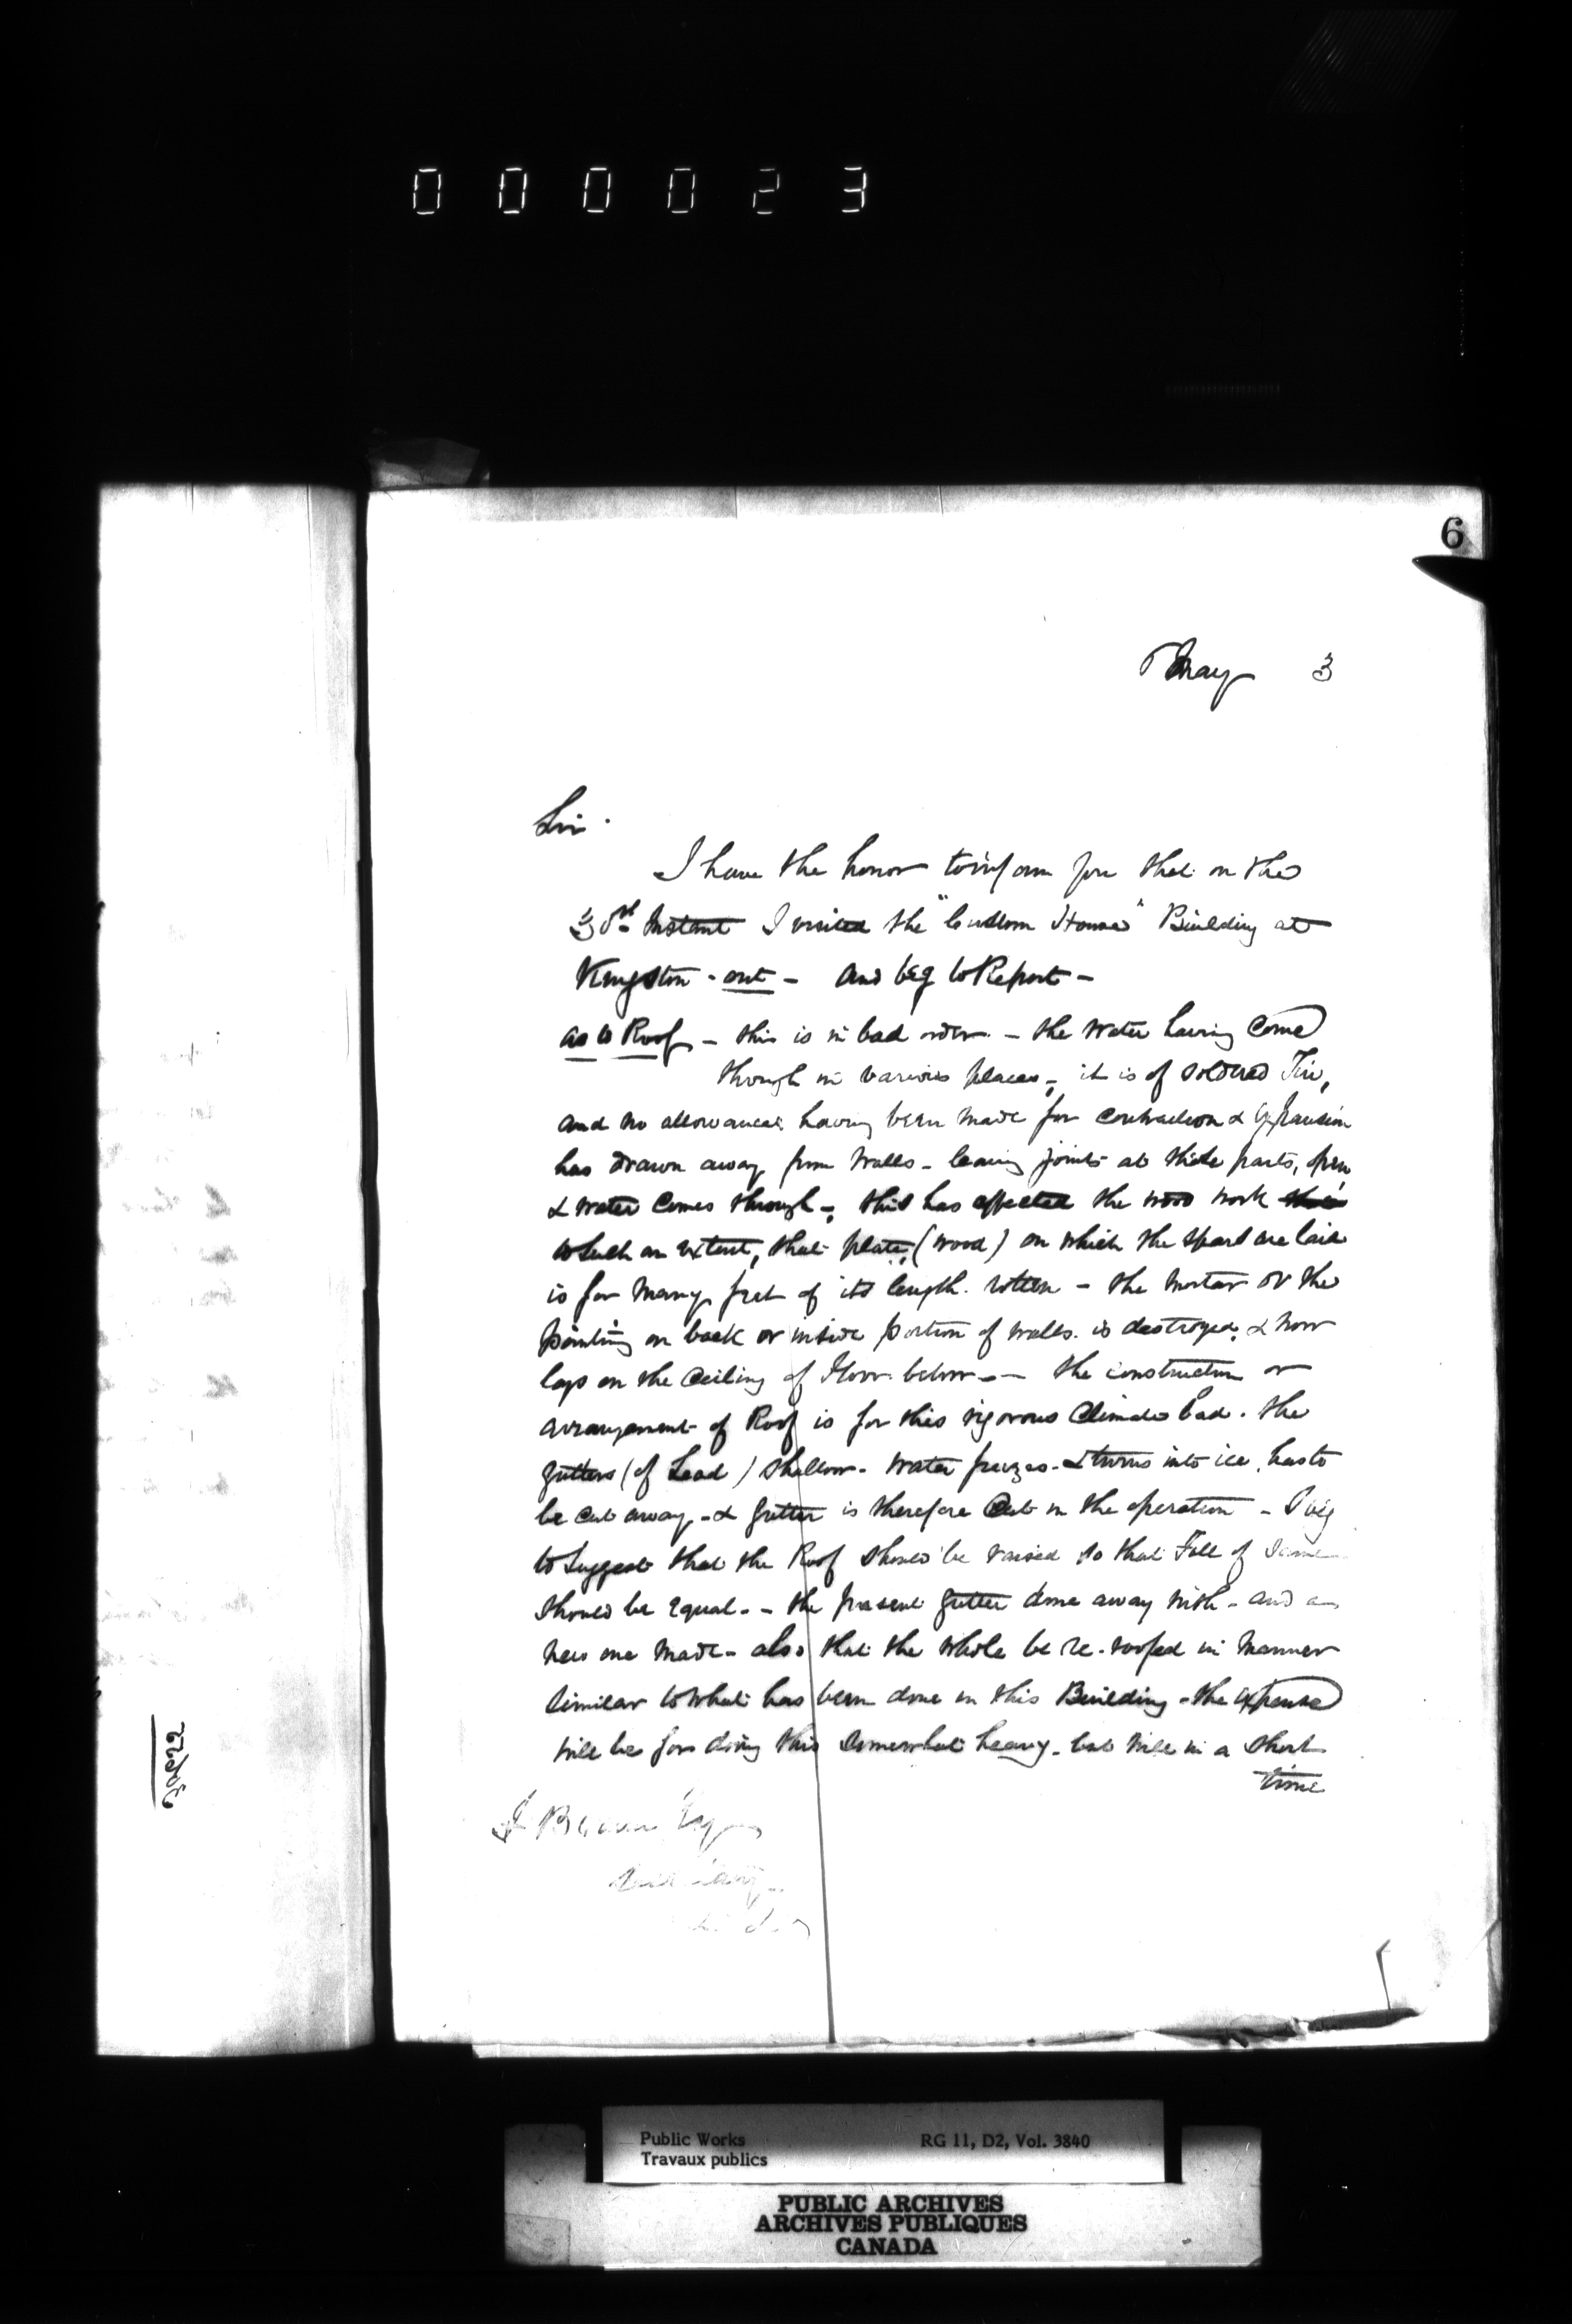 000023
6
May 3
Sir.
I have the honor to inform you that on the
3rd Instant I visited the "Custom House" Building at
Kingston - Ont - and beg to Report -
as to Roof - this is in bad order - the water having come
through in various places - it is of soldered Tin,
and no allowance having been made for contraction & expansion
has drawn away from walls - leaving joints at these parts, open
& water comes through - this has affected the wood work
to such an extent, that plate, (wood) on which the spars are laid
is for many feet of its length rotten - the mortar or the
pointing on back or inside portion of walls is destroyed & now
lays on the ceiling of Floor below - the construction or
arrangement of Roof is for this rigorous climate bad. the
gutters (of Lead) shallow - water freezes & turns into ice, has to
be cut away - & gutter is therefore cut in the operation - I beg
to suggest that the Roof should be raised so that Fall of same
should be equal - the present gutter done away with - and a
new one made - also that the whole be re-roofed in manner
similar to what has been done in this Building - the expense
will be for doing this somewhat heavy - but will in a short
time
Braun Esq
Public Works
RG 11, D2, Vol. 3840
Travaux publics
PUBLIC ARCHIVES
ARCHIVES PUBLIQUES
CANADA